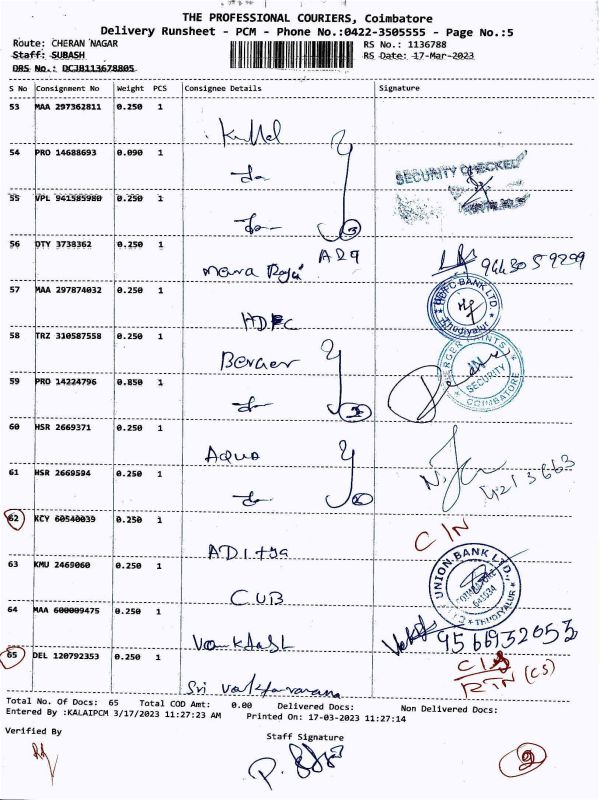 THE PROFESSIONAL COURIERS, Coimbatore
Delivery Runsheet - PCM - Phone No.:0422-3505555 - Page No.:5
Route: CHERAN NAGAR RS No.: 1136788
Staff: SUBASH RS Date: 17-Mar-2023
DRS No.: DCJB113678805
S No Consignment No Weight PCS Consignee Details Signature
53 MAA 297362811 0.250 1
54 PRO 14688693 0.090 1
SECURITY CHECKED
55 VPL 941585980 0.250 1
56 OTY 3738362 0.250 1
HDFC BANK LTD.
Thudiyalur
57 MAA 297874032 0.250 1 HDFC
58 TRZ 310587558 0.250 1 Berger
BERGER PAINTS
IN
SECURITY
COIMBATORE
59 PRO 14224796 0.850 1
60 HSR 2669371 0.250 1 Aqua
61 HSR 2669594 0.250 1
62 KCY 60540039 0.250 1 ADitya C/N
63 KMU 2469060 0.250 1 CUB
UNION BANK LTD.,
COIMBATORE
641034
THUDIYALUR
64 MAA 600009475 0.250 1 9566932053
65 DEL 120792353 0.250 1 Sri
RTN (CS)
Total No. Of Docs: 65 Total COD Amt: 0.00 Delivered Docs: Non Delivered Docs:
Entered By :KALAIPCM 3/17/2023 11:27:23 AM Printed On: 17-03-2023 11:27:14
Verified By Staff Signature